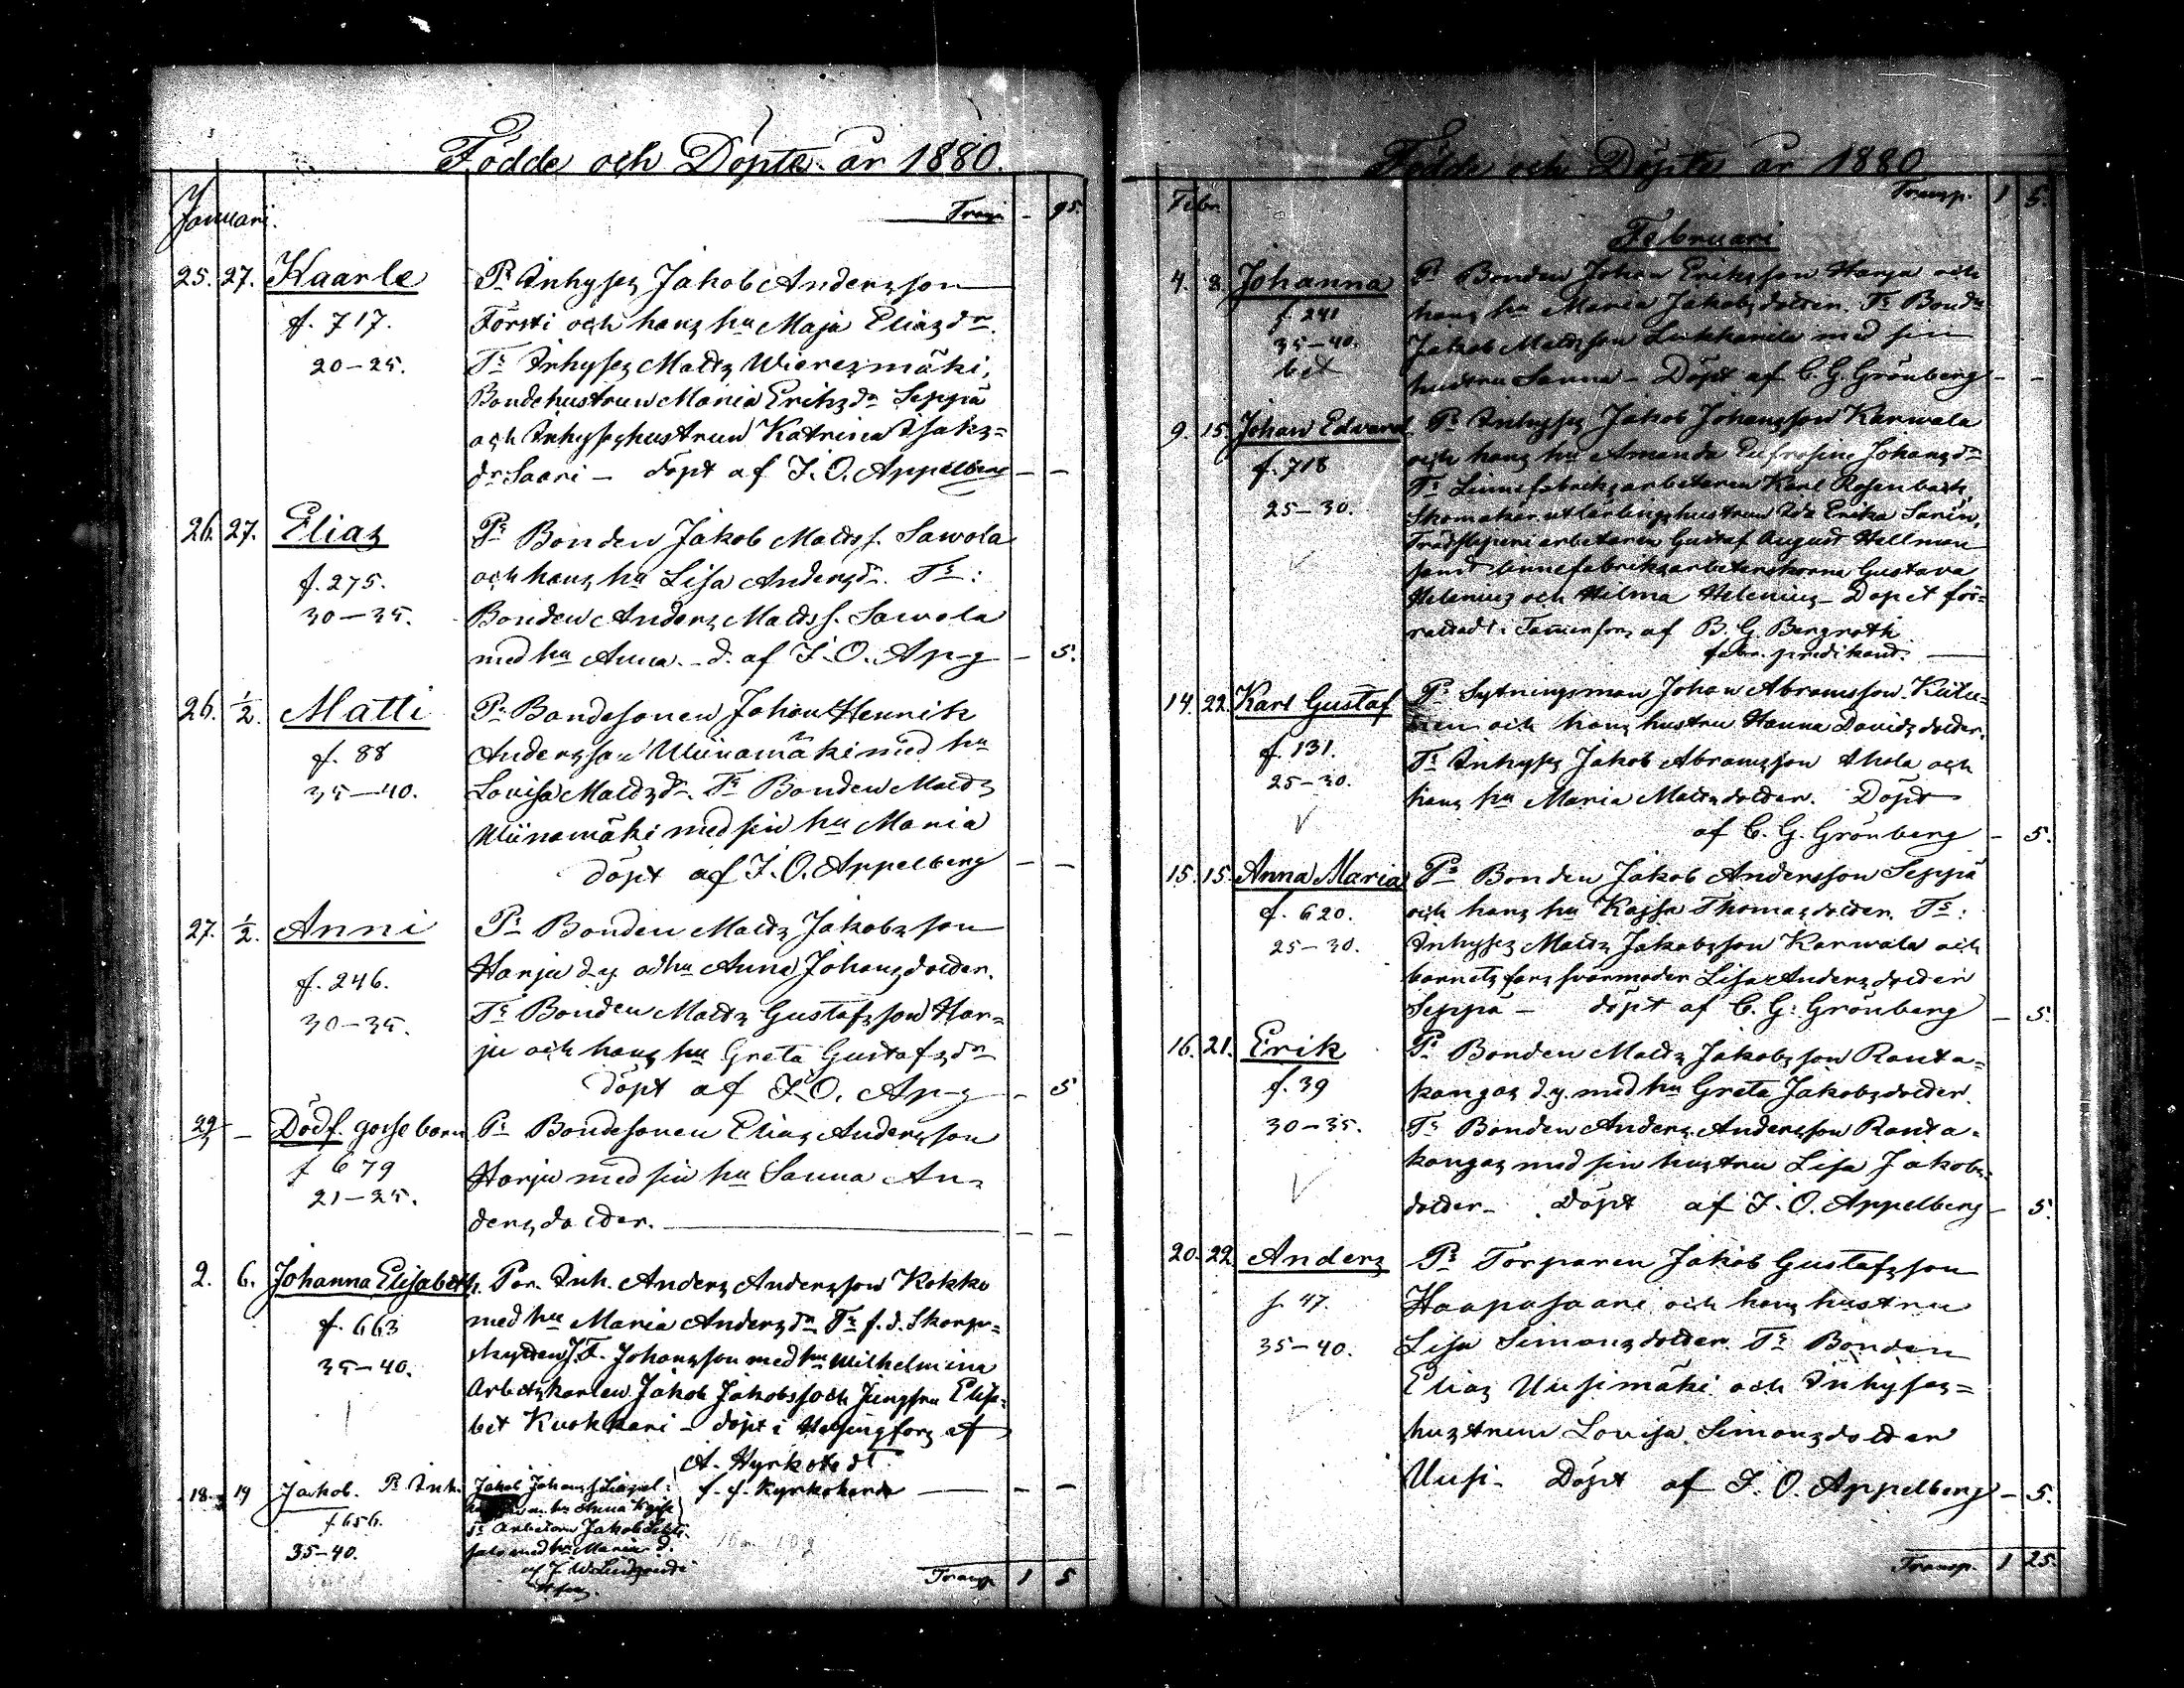 Födde och Döpte år 1880.
Januari.
Transp. - 95.
25. 27. Kaarle Ps Inhyses Jakob Andersson
f. 717. Försti och hans hu Maja Eliasdr.
20-25. Ts Inhyses Matts Wieresmäki,
Bondehustrun Maria Eriksdr Seppä
och Inhyseshustrun Katrina Isaks=
dr Saari - döpt af J. O. Appelberg - -
26. 27. Elias Ps Bonden Jakob Mattss. Sawola
f. 275. och hans hu Lisa Andersdr. Ts:
30-35. Bonden Anders Mattss. Sawola
med hu Anna. - d. af J. O. Ap-g - 5.
26. 1/2. Matti Ps Bondesonen Johan Henrik
f. 88 Andersson Wiinamäki med hu
35-40. Lovisa Mattsdr. Ts Bonden Matts
Wiinamäki med sin hu Maria
döpt af J. O. Appelberg - -
27. 1/2. Anni Ps Bonden Matts Jakobsson
f. 246. Harju d.y. o hu Anna Johansdotter.
30-35. Ts Bonden Matts Gustafsson Har=
ju och hans hu Greta Gustafsdr
döpt af J. O. Ap-g - 5
29 - Dödf. gossebarn Ps Bondesonen Elias Andersson
f 679 Harju med sin hu Sanna An=
21-25. dersdotter. - -
2. 6. Johanna Elisabeth. Par. Inh. Anders Andersson Kokko
f. 663 med hu Maria Andersdr Ts f.d. Skarp=
35-40. skytten J. F. Johansson med hu Wilhelmina
Arbetskarlen Jakob Jakobsson och Jungfru Elisa=
bet Kuokkari - döpt i Helsingfors af
A. Hyrkstedt
f. f. Kyrkoherde - -
18. 19 Jakob. Ps Inh. Jakob Johanss
hu Anna Kajsa
f 656. Ts Arbetaren Jakob
35-40. med hu Maria d.
af J. W.
Transp 1 5
Födde och Döpte år 1880
Febr. Transp. 1 5.
Februari
4. 8. Johanna Ps Bonden Johan Eriksson Harja och
f. 241 hans hu Maria Jakobsdotter. Ts Bondn
35-40. Jakob Mattsson Lukkarila med sin
hustru Sanna - Döpt af C. G. Grönberg - -
9. 15. Johan Edvard Ps Inhyses Jakob Johansson Karwala
f. 718 och hans hu Amanda Eufrosine Johansdr
Ts Linnefabriksarbetaren Karl Rosenback,
25-30. Skomakareutlärlingshustrun Ida Erika Sarin,
Trådspinneriarbetaren Gustaf August Hellman
samt linnefabriksarbeterskorna Gustava
Helenius och Hilma Helenius - Dopet för=
rättadt i Tammerfors af B. G. Bergroth
fabr. predikant.
14. 22. Karl Gustaf Ps Sytningsman Johan Abramsson
och hans hustru Hanna Davidsdotter.
f. 131. Ts Inhyses Jakob Abramsson Ahola och
25-30. hans hu Maria Mattsdotter. Döpt
af C. G. Grönberg - 5.
15. 15. Anna Maria Ps Bonden Jakob Andersson Seppä
f. 620. och hans hu Kajsa Thomasdotter. Ts:
25-30. Inhyses Matts Jakobsson Karwala och
barnets fars svärmoder Lisa Andersdotter
Seppä - döpt af C. G. Grönberg - 5.
16. 21. Erik Ps Bonden Matts Jakobsson Ranta=
f. 39 kangas d.y. med hu Greta Jakobsdotter.
30-35. Ts Bonden Anders Andersson Ranta=
kangas med sin hustru Lisa Jakobs=
dotter - Döpt af J. O. Appelberg - 5.
20. 22 Anders Ps Torparen Jakob Gustafsson
f. 47. Haapasaari och hans hustru
35-40. Lisa Simonsdotter. Ts Bonden
Elias Uusimäki och Inhyses=
hustrun Lovisa Simonsdotter
Uusi - Döpt af J. O. Appelberg - 5.
Transp. 1 25.